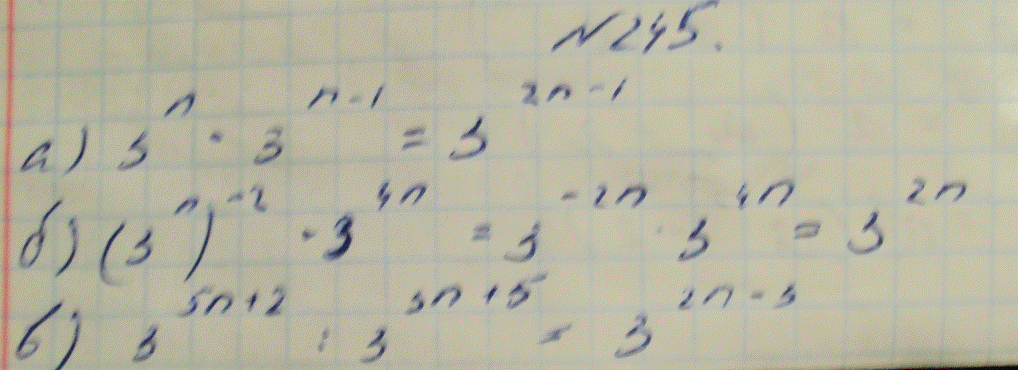 N 245.
а) 3^n · 3^(n-1) = 3^(2n-1)
б) (3^n)^(-2) · 3^(4n) = 3^(-2n) · 3^(4n) = 3^(2n)
в) 3^(5n+2) : 3^(3n+5) = 3^(2n-3)